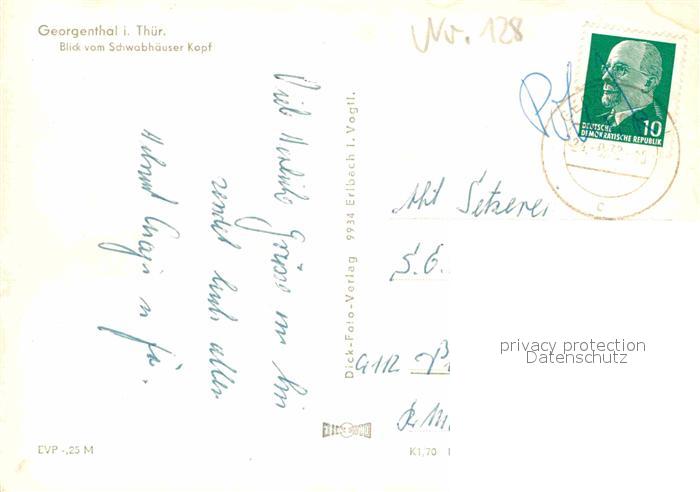 Georgenthal i. Thür.
Blick vom Schwabhäuser Kopf
Nr. 128
DEUTSCHE
DEMOKRATISCHE REPUBLIK
10
Viele herzliche Grüße
sendet Euch allen
Helmut
u. Fa.
Dick-Foto-Verlag 9934 Erlbach i. Vogtl.
Mit Setzerei
S.G.
9112
privacy protection
Datenschutz
EVP -,25 M
K1,70